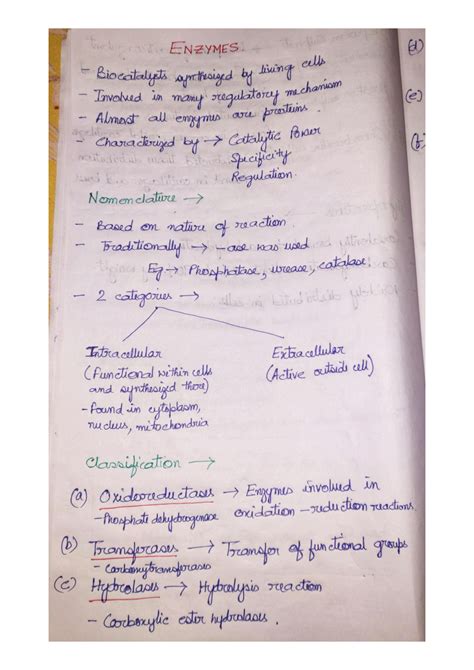 ENZYMES
- Biocatalysts synthesized by living cells
- Involved in many regulatory mechanism
- Almost all enzymes are proteins.
- Characterized by → Catalytic Power
Specificity
Regulation.
Nomenclature →
- Based on nature of reaction.
- Traditionally → -ase was used
Eg → Phosphatase, urease, catalase.
- 2 categories →
Intracellular
(functional within cells
and synthesized there)
- found in cytoplasm,
nucleus, mitochondria
Extracellular
(Active outside cell)
Classification →
(a) Oxidoreductases → Enzymes involved in
- Phosphate dehydrogenase oxidation - reduction reactions.
(b) Transferases → Transfer of functional groups
- Carbamyltransferases
(c) Hydrolases → Hydrolysis reaction
- Carboxylic ester hydrolases.
(d)
(e)
(f)